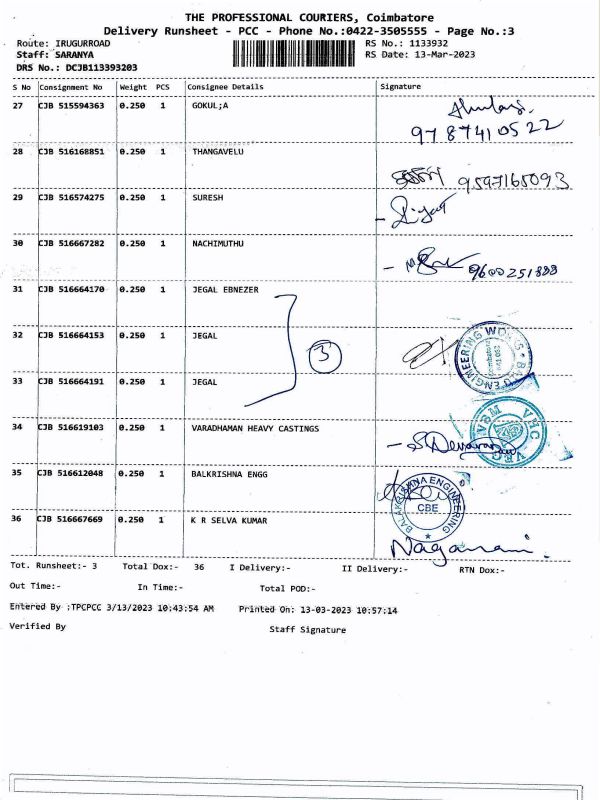 THE PROFESSIONAL COURIERS, Coimbatore
Delivery Runsheet - PCC - Phone No.:0422-3505555 - Page No.:3
Route: IRUGURROAD RS No.: 1133932
Staff: SARANYA RS Date: 13-Mar-2023
DRS No.: DCJB113393203
S No Consignment No Weight PCS Consignee Details Signature
27 CJB 515594363 0.250 1 GOKUL;A
9787410522
28 CJB 516168851 0.250 1 THANGAVELU
9597165093
29 CJB 516574275 0.250 1 SURESH
30 CJB 516667282 0.250 1 NACHIMUTHU
9600251888
31 CJB 516664170 0.250 1 JEGAL EBNEZER
32 CJB 516664153 0.250 1 JEGAL
3
33 CJB 516664191 0.250 1 JEGAL
34 CJB 516619103 0.250 1 VARADHAMAN HEAVY CASTINGS
VBM VHC
35 CJB 516612048 0.250 1 BALKRISHNA ENGG
BALAKRISHNA ENGINEERING
CBE
36 CJB 516667669 0.250 1 K R SELVA KUMAR
Naganani.
Tot. Runsheet:- 3 Total Dox:- 36 I Delivery:- II Delivery:- RTN Dox:-
Out Time:- In Time:- Total POD:-
Entered By :TPCPCC 3/13/2023 10:43:54 AM Printed On: 13-03-2023 10:57:14
Verified By Staff Signature